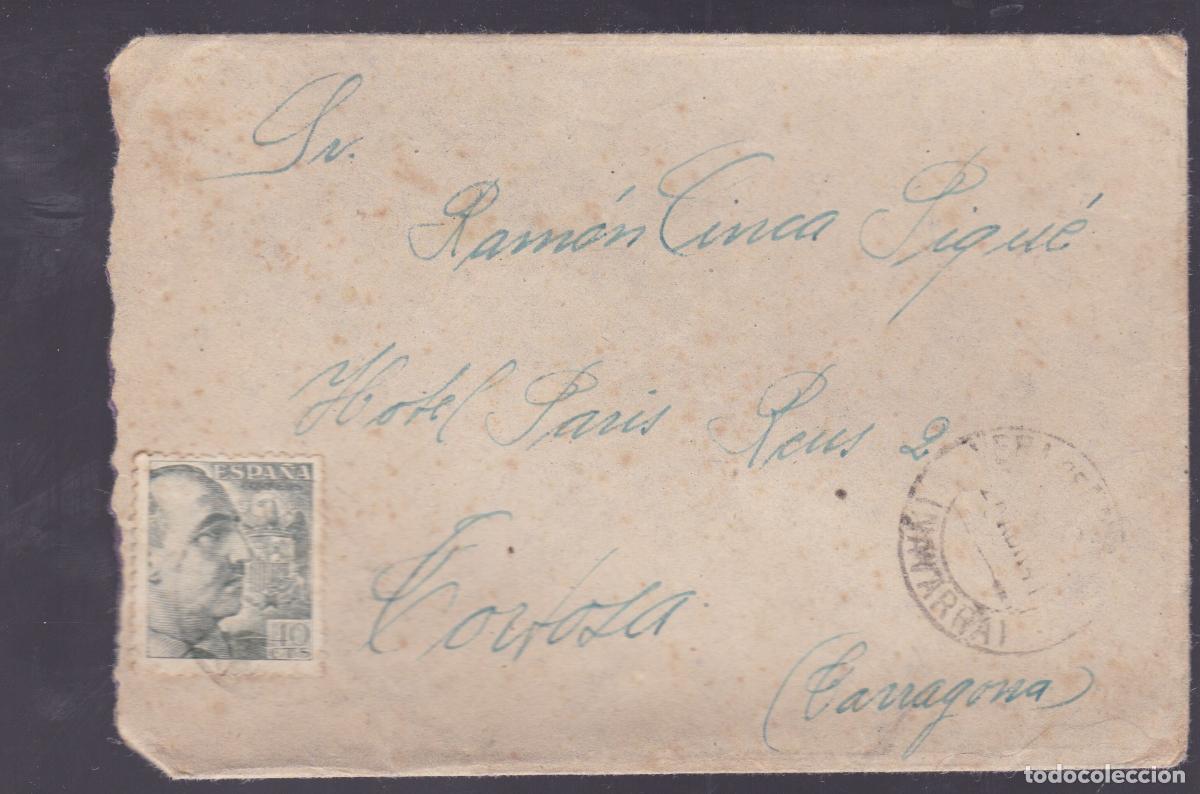 Sr.
Ramón Cinca Piqué
Hotel Paris Reus 2
Tortosa
(Tarragona)
ESPAÑA
10
CTS
todocoleccion